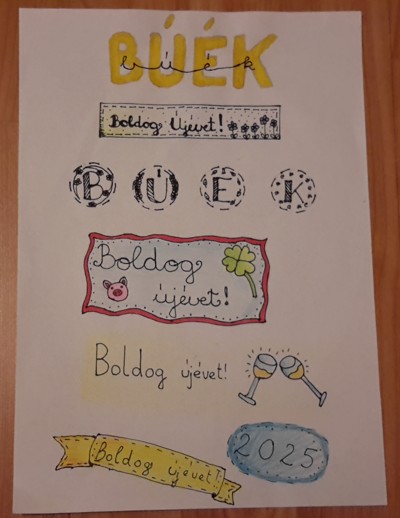 BÚÉK
búék
Boldog Újévet!
B Ú É K
Boldog
újévet!
Boldog újévet!
Boldog újévet!
2025